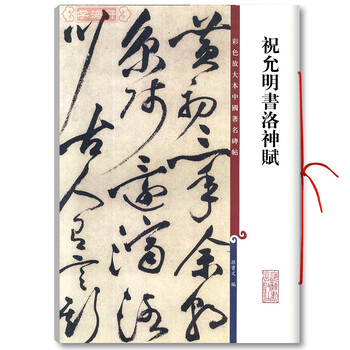 祝允明書洛神賦
彩色放大本中國著名碑帖
孫寶文 編
黃初三年余朝
京師還濟洛
川古人有言斯
学海轩